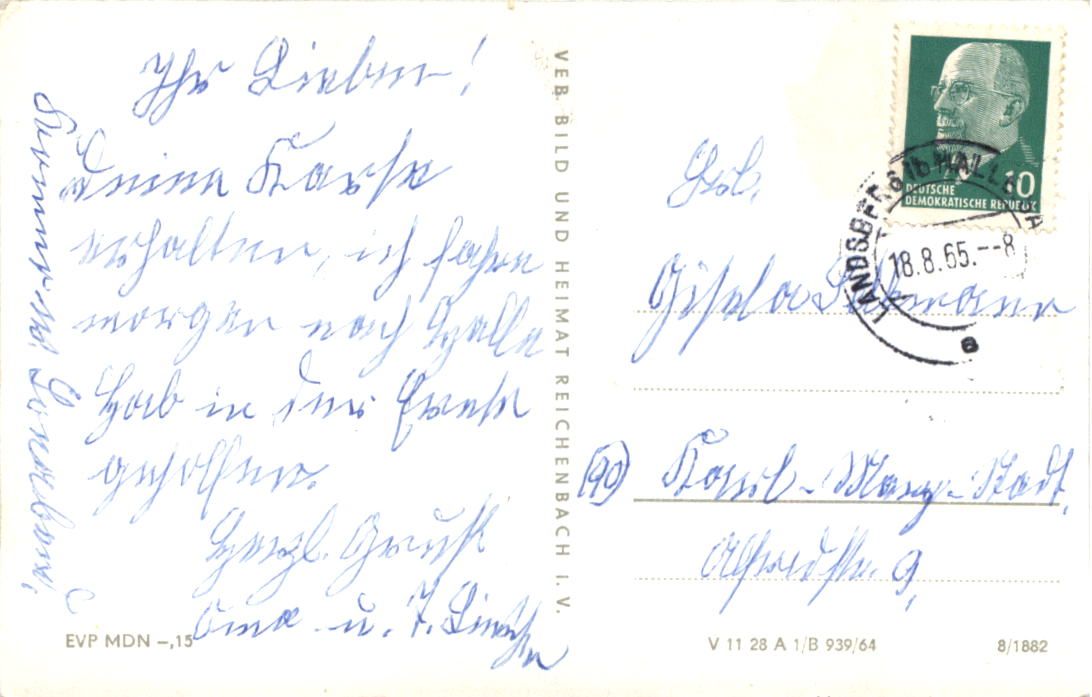 Ihr Lieben!
Deine Karte
erhalten, ich fahre
morgen nach Halle
Hab in der Ernte
geholfen.
Herzl. Grüße
Oma u. T. Lieschen
VEB BILD UND HEIMAT REICHENBACH I. V.
EVP MDN –,15
DEUTSCHE
DEMOKRATISCHE REPUBLIK
10
LANDSBERG HALLE
18.8.65.--8
a
Frl.
Gisela
(90) Karl-Marx-Stadt,
9,
V 11 28 A 1/B 939/64
8/1882